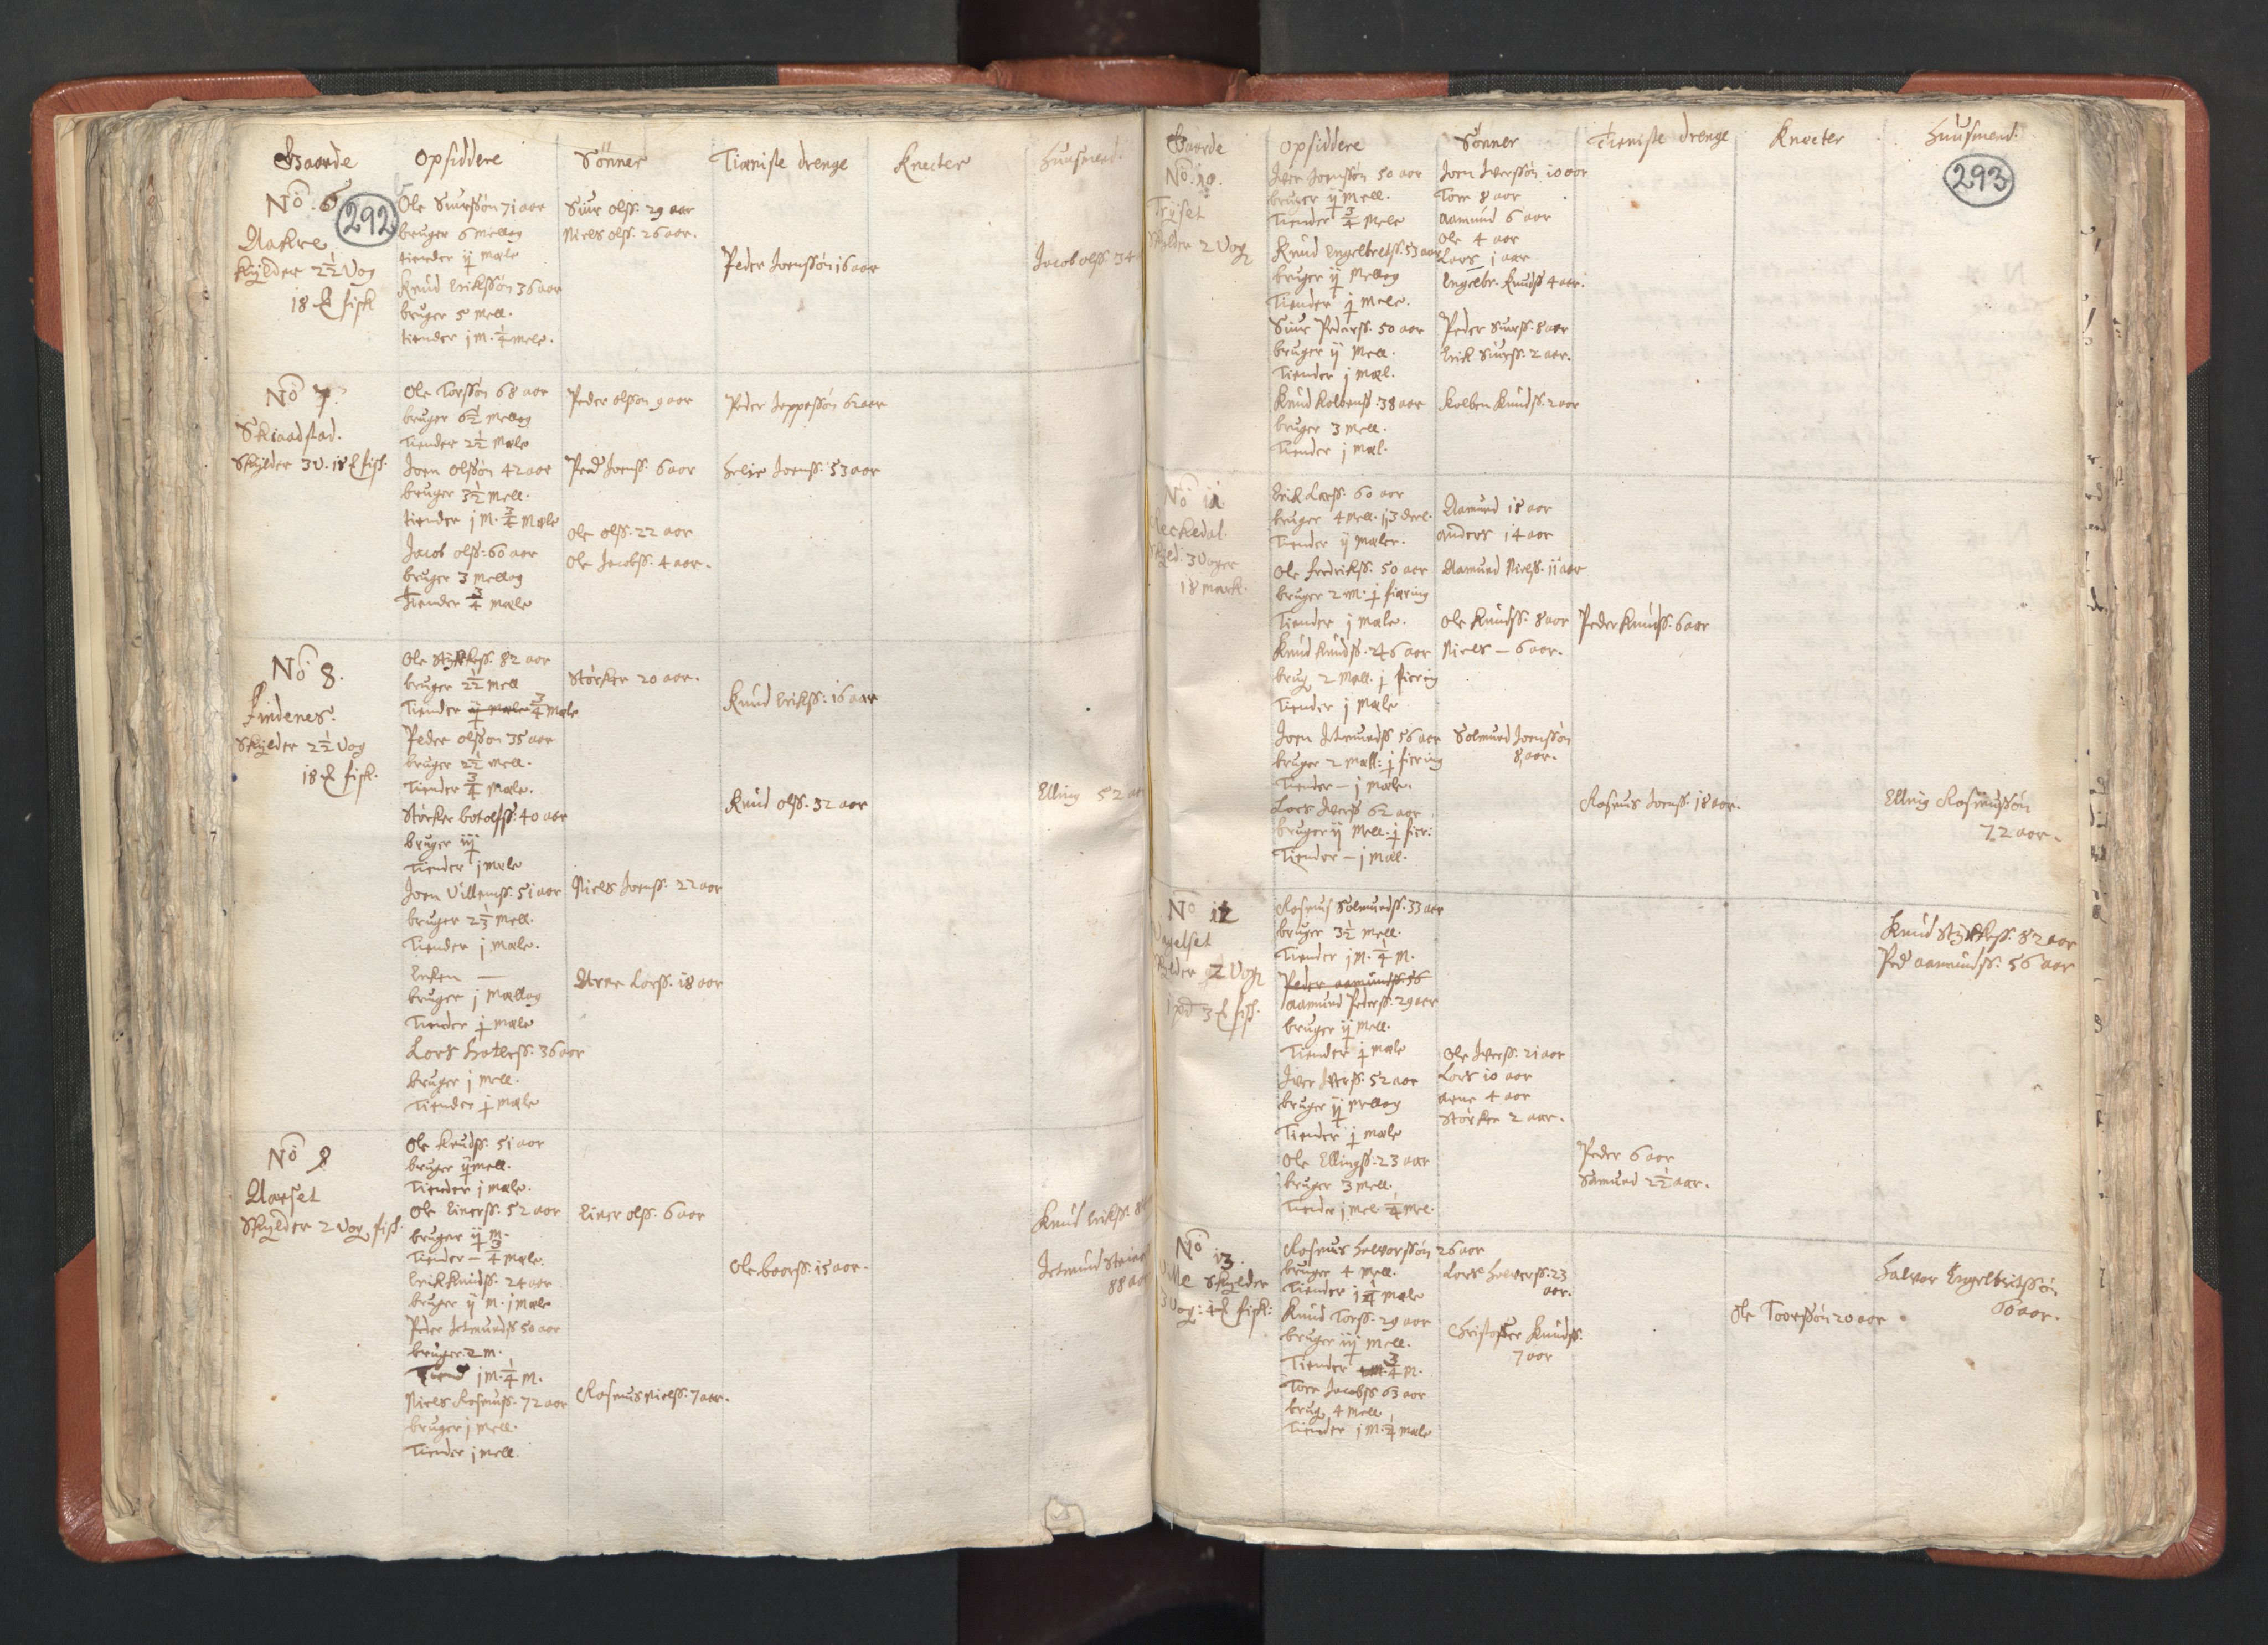 Gaarde Opsiddere Sønner Tieniste drenge Knecter Huusmend.
292
No. 6
Aakre
skylder 2½ Vog
18 ℔ fisk
Ole Siurssøn 71 aar
bruger 6 mellag
tiender ij mæle
Knud Erikssøn 36 aar
bruger 5 mell.
tiender j m. ¼ mele.
Siur olss. 29 aar
Niels olss. 26 aar.
Peder Joenssøn 16 aar
Jacob olss. 34
No 7.
Skiaadstad.
Skylder 3 V. 18 ℔ fisk.
Ole Torssøn 68 aar
bruger 6½ mellag
Tiender 2½ mæle
Joen Olssøn 42 aar
bruger 3½ mell.
tiender j m. ¾ mæle
Jacob olss: 60 aar
bruger 3 mellag
Tiender ¾ mæle
Peder olsson 9 aar
Ped Joenss. 6 aar
Ole olss. 22 aar
Ole Jacobss. 4 aar.
Peder Jeppessøn 62 aar
Helie Joenss. 53 aar
No 8.
Findenes.
Skylder 2½ Vog
18 ℔ fisk.
Ole Styrkess. 82 aar
bruger 2½ mell
Tiender ij mæle ¾ mæle
Peder olsson 35 aar
bruger 2½ mell.
Tiender ¾ mæle.
Størker botolfss: 40 aar
bruger iij
Tiender j mæle
Joen Villemss. 51 aar
bruger 2⅓ mell.
Tiender j mæle.
Enken —
bruger j mællag
Tiender j mæle
Lars 36 aar
bruger j mell.
Tiender j mæle
Størker 20 aar.
Niels Joenss. 22 aar
Arne Larss. 18 aar
Knud Erikss: 16 aar
Knud olss. 32 aar
Elling 52
No 9
Aarset
Skylder 2 Vog fisk.
Ole Knudss. 51 aar
bruger ij mell.
Tiender j mæle.
Ole Einerss. 52 aar
bruger ij m.
Tiender — ¾ mæle.
Erik Knudss. 24 aar
bruger ij m. j mæle
Peder Jetmundss 50 aar
bruger. 2 m.
Tiend j m. ¼ m.
Niels Rasmuss. 72 aar
bruger j mell.
Tiender j mell.
Einer olss. 6 aar
Rasmus Nielss. 7 aar.
Ole baarss. 15 aar.
Knud Erikss.
Jetmund
88 aar
Gaarde Opsiddere Sønner Tieniste drenge Knecter Huusmend.
293
No. 10.
Tryset
skylder 2 Vog
Iver Joenssøn 50 aar
bruger ij mell.
Tiender ¾ mele
Knud Engelbretss. 53 aar
bruger ij mellag
Tiender j mele.
Siur Pederss. 50 aar
bruger ij mell.
Tiender j mæl.
Knud Kolbenss. 38 aar
bruger 3 mell.
Tiender j mæl.
Joen Iverssøn 10 aar
Tore 8 aar
Aamund 6 aar
Ole 4 aar
Lars 1 aar
Engelbr. Knudss 4 aar.
Peder Siurss. 8 aar
Erik Siurss. 2 aar.
Kolben Knudss. 2 aar
No 11
skyld. 3 Voger
18 mark.
Erik Larss. 60 aar
bruger 4 mell. 1/3 deel.
Tiender ij mæler.
Ole fredrikss. 50 aar
bruger 2 m. j fiæring
Tiender j mæle.
Knud Knudss. 46 aar
brug 2 Mæll. j fiering
Tiender j mæle
Joen Jetmundss 56 aar
bruger 2 mæll: j fiering
Tiender — j mæle.
Lars Iverss 62 aar
bruger ij mell. j fier:
Tiender — j mæl.
Aamund 18 aar
Anders 14 aar
Aamund Nielss. 11 aar
Ole Knudss. 8 aar
Niels — 6 aar.
Solmund Joenssøn
8 aar.
Peder Knudss. 6 aar
Rasmus Joenss. 18 aar.
Elling Rasmussøn
72 aar.
No 12
skylder 2 Vog
1 pd 3 ℔ fisk.
Rasmus Solmundss. 33 aar
bruger 3½ mell.
Tiender j m. ¼ m.
Peder aamundss. 56
Aamund Pederss. 29 aar
bruger ij mell.
Tiender j mæle
Iver Iverss. 52 aar
bruger ij mellag
Tiender j mæle
Ole Ellingss. 23 aar
bruger 3 mell.
Tiender j mel ¼ mel.
Ole Iverss. 21 aar
Lars 10 aar
Arne 4 aar
Størker 2 aar.
Peder 6 aar
Samund 2½ aar.
Knud Styrkess. 82 aar
Ped aamundss. 56 aar
No 13.
skylder
3 Vog: ℔ fisk:
Rasmus Halvorssøn 26 aar
bruger 4 mell.
Tiender 1¼ mæle
Knud Torss. 29 aar
bruger iij mell.
Tiender ¾ m.
Tore Jacobss 63 aar
brug 4 mell
Tiender j m. ¼ mæle
Lars Halvorss. 23
aar.
Christoffer Knudss.
7 aar
Ole Toorssøn 20 aar
Halvor Engelbritssøn
60 aar.